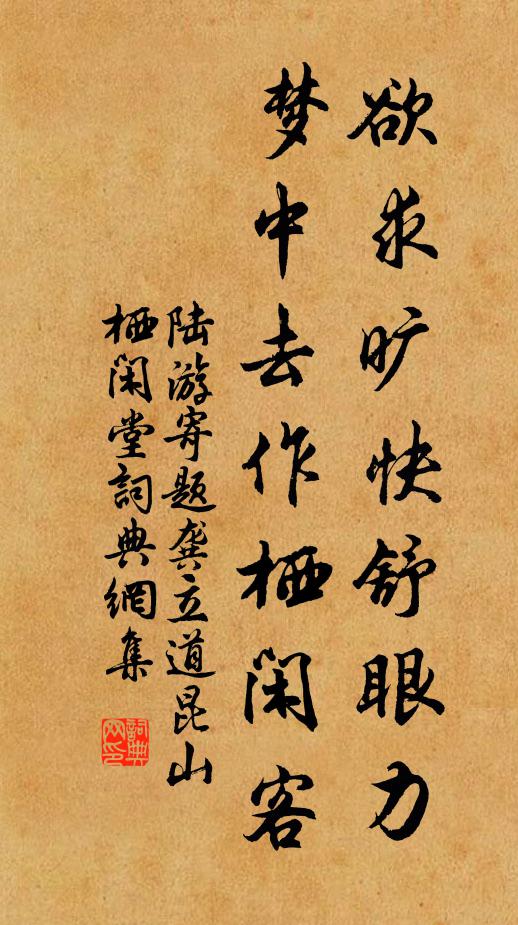 欲求旷快舒眼力
梦中去作栖闲客
陆游寄题龚立道昆山
栖闲堂詞典網集
詞典网印